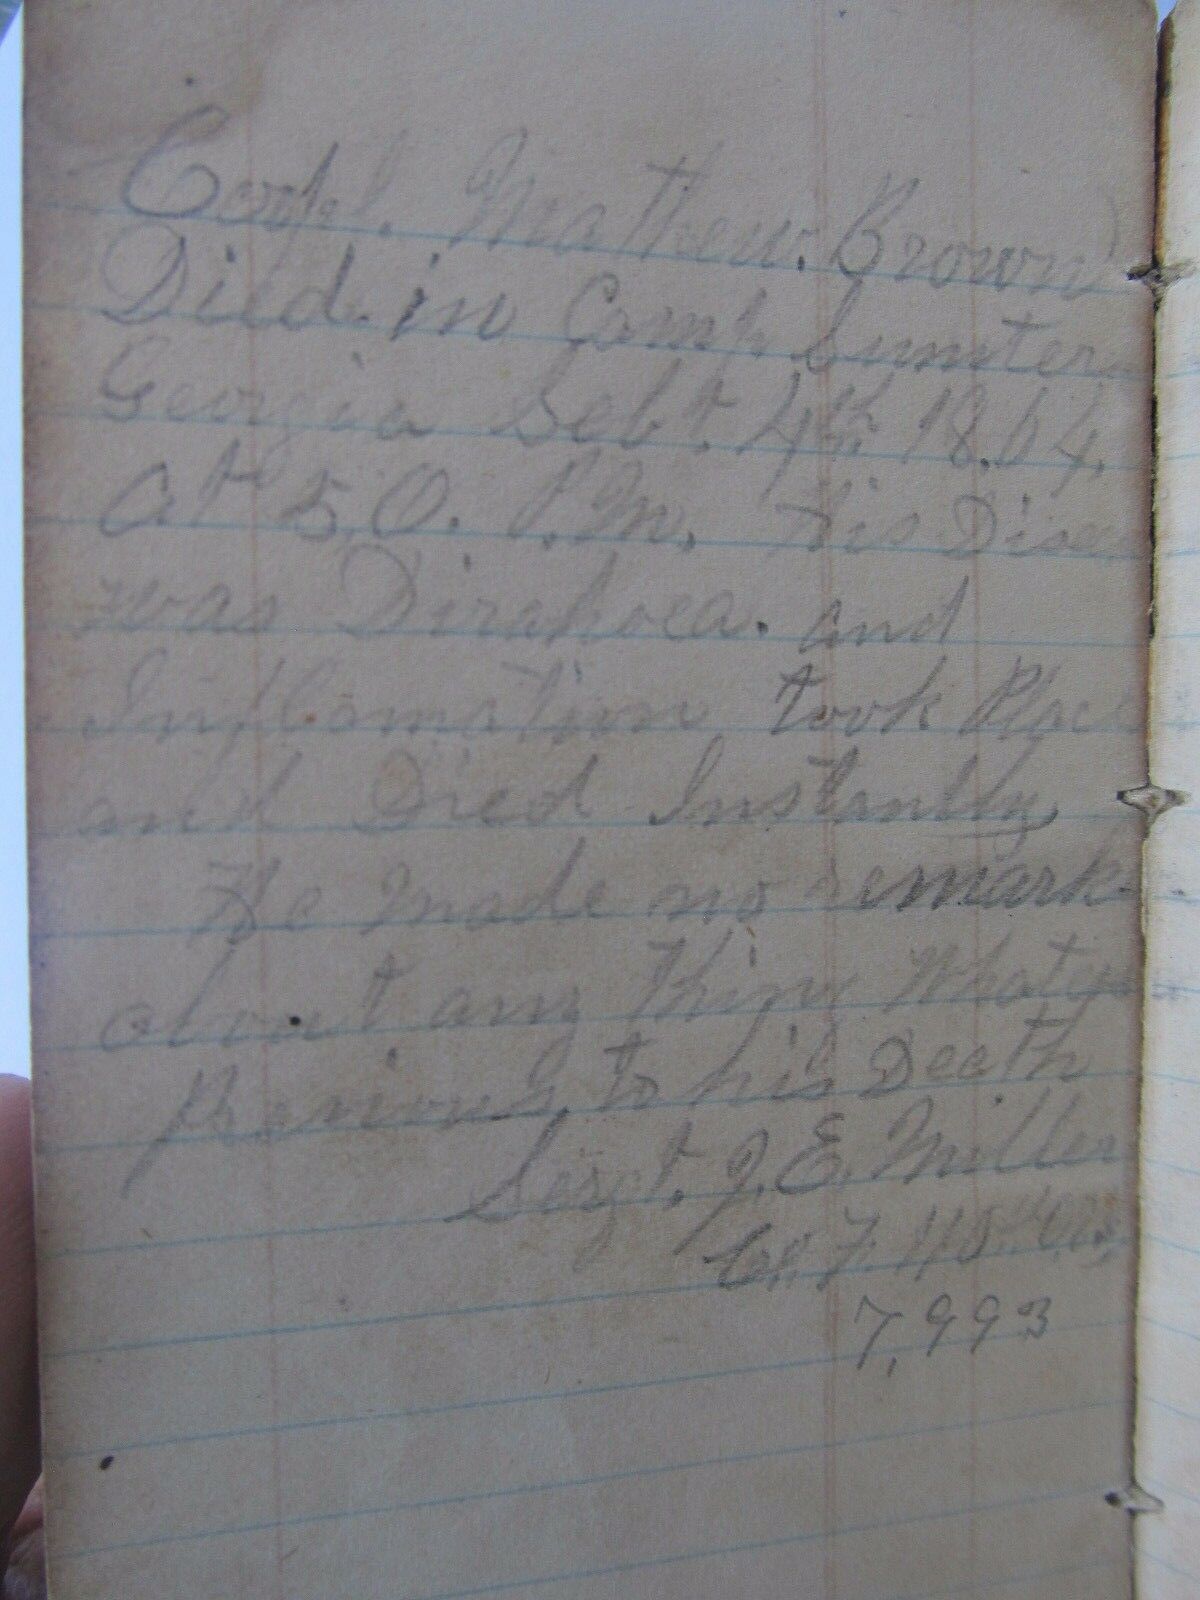 Corpl. Mathew. Brown
Died. in Camp Sumter
Georgia Sebt. 4th 18.64.
At 5,O. P.M. His Diseas
was Dirahoea. and
Inflamation took Place
and Died Instantly
He made no remark
about any thing What
Previous to his Death
Sergt. J. E. Miller
Co. F.
7,993